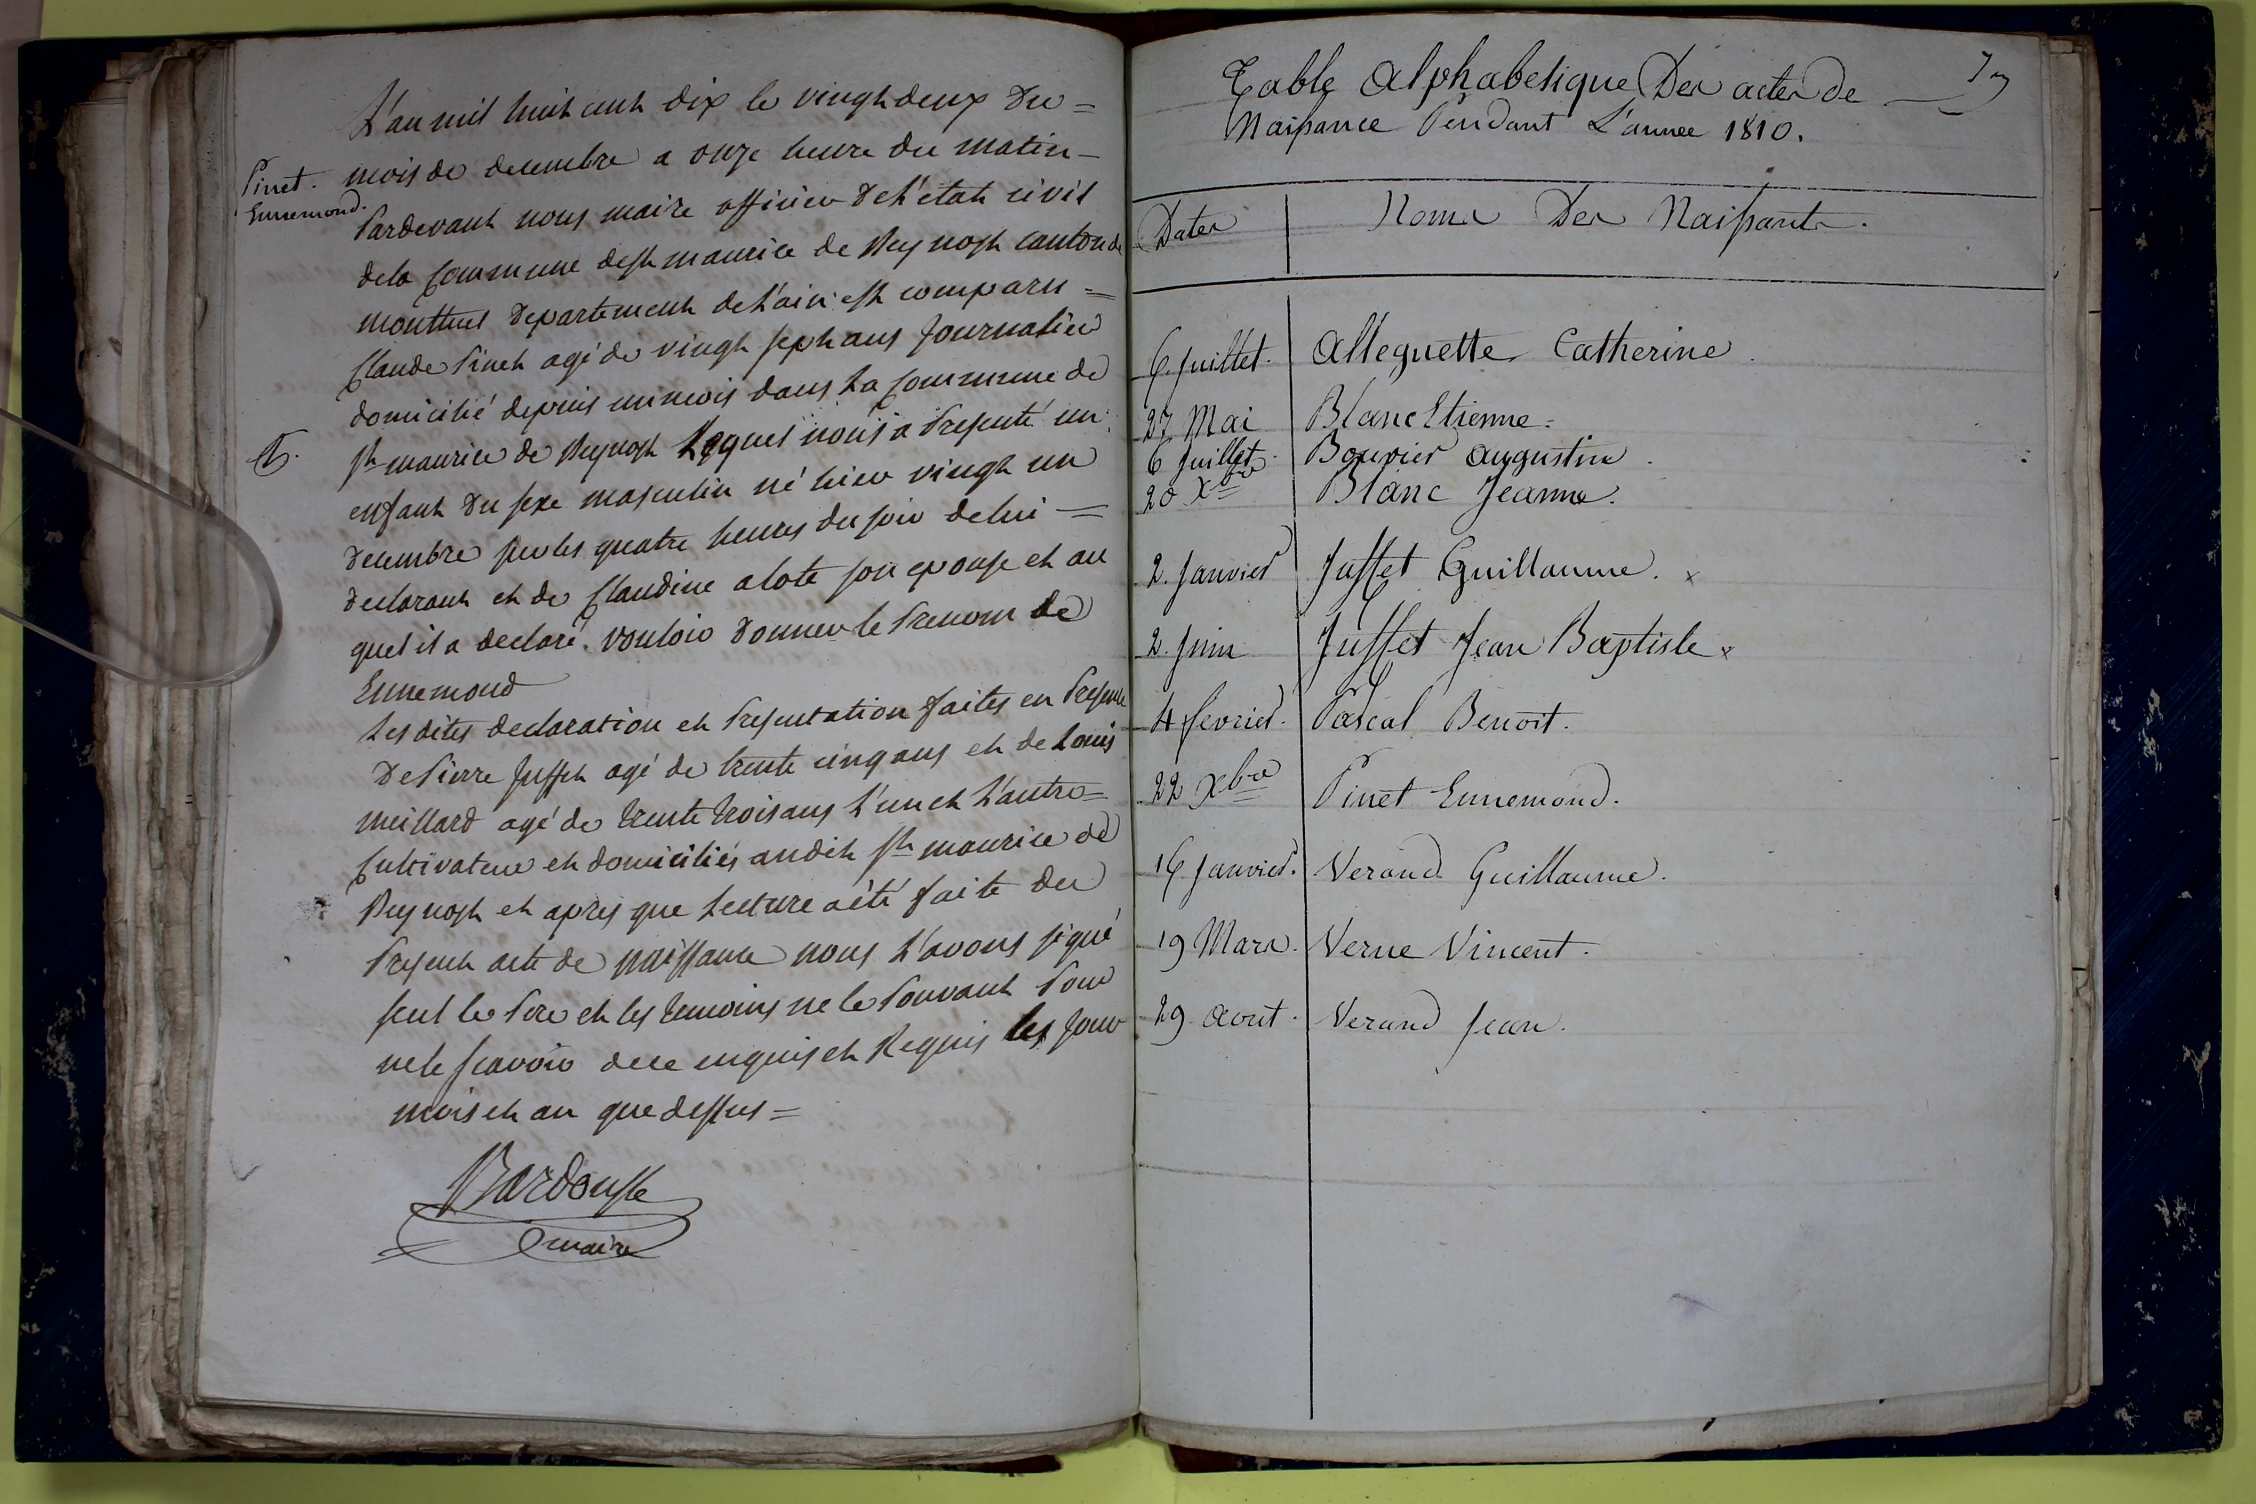 L'an mil huit cent dix le vingt deux du =
mois de decembre a onze heure du matin -
Pinet.
Ennemond.
Pardevant nous maire officier de l'etat civil
de la Commune de st maurice de Reynost canton de
monttuel departement de l'ain est comparu =
Claude Pinet agé de vingt sept ans Journalier
domicilié depuis un mois dans la Commune de
st maurice de Reynost Lequel nous a Presenté un
enfant du sexe masculin né hier vingt un
decembre sur les quatre heures du soir de lui =
declarant et de Claudine alote son epouse et au
quel il a declaré vouloir donner le Prenom de
Ennemond
Les dites declaration et Presentation faites en Presence
De Pierre Juffet agé de trente cinq ans et de Louis
meillard agé de trente trois ans l'un et l'autre =
Cultivateur et domiciliés au dit st maurice de
Reynost et après que Lecture a été faite du
Present acte de naissance nous l'avons signé
seul le Pere et les temoins ne le Pouvant Pour
ne le scavoir de ce enquis et Requis les Jour
mois et an que dessus =
Bardousse
maire
Table Alphabetique Des actes de
Naissance Pendant L'annee 1810.
Dates Noms Des Naissants.
6 Juillet. Alleguette Catherine.
27 Mai Blanc Etienne.
6 Juillet. Bouvier Augustin.
20 Xbre Blanc Jeanne.
2. Janvier Juffet Guillaume. x
2. Juin Juffet Jean Baptiste x
4 fevrier. Pascal Benoit.
22 Xbre Pinet Ennemond.
16 Janvier. Verand Guillaume.
19 Mars. Verne Vincent.
29 Aout. Verand Jean.